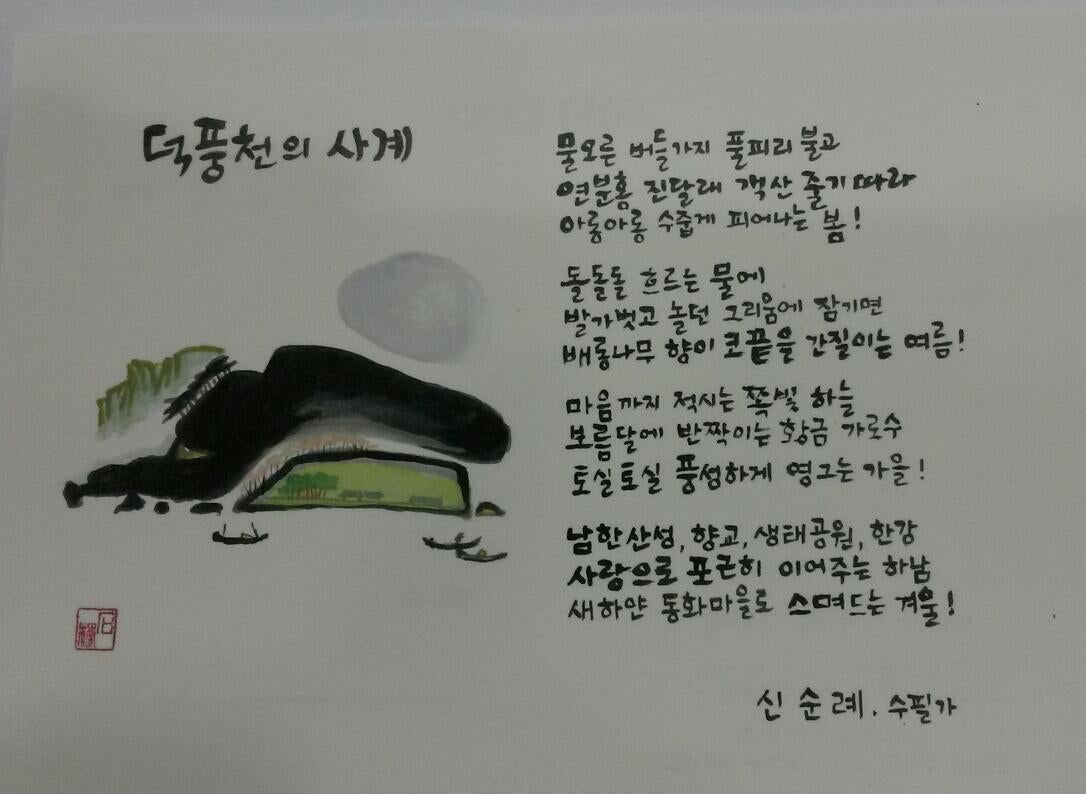 덕풍천의 사계
물오른 버들가지 풀피리 불고
연분홍 진달래 객산 줄기 따라
아롱아롱 수줍게 피어나는 봄!
돌돌돌 흐르는 물에
발가벗고 놀던 그리움에 잠기면
배롱나무 향이 코끝을 간질이는 여름!
마음까지 적시는 쪽빛 하늘
보름달에 반짝이는 황금 가로수
토실토실 풍성하게 영그는 가을!
남한산성, 향교, 생태공원, 한강
사랑으로 포근히 이어주는 하남
새하얀 동화마을로 스며드는 겨울!
신순례. 수필가